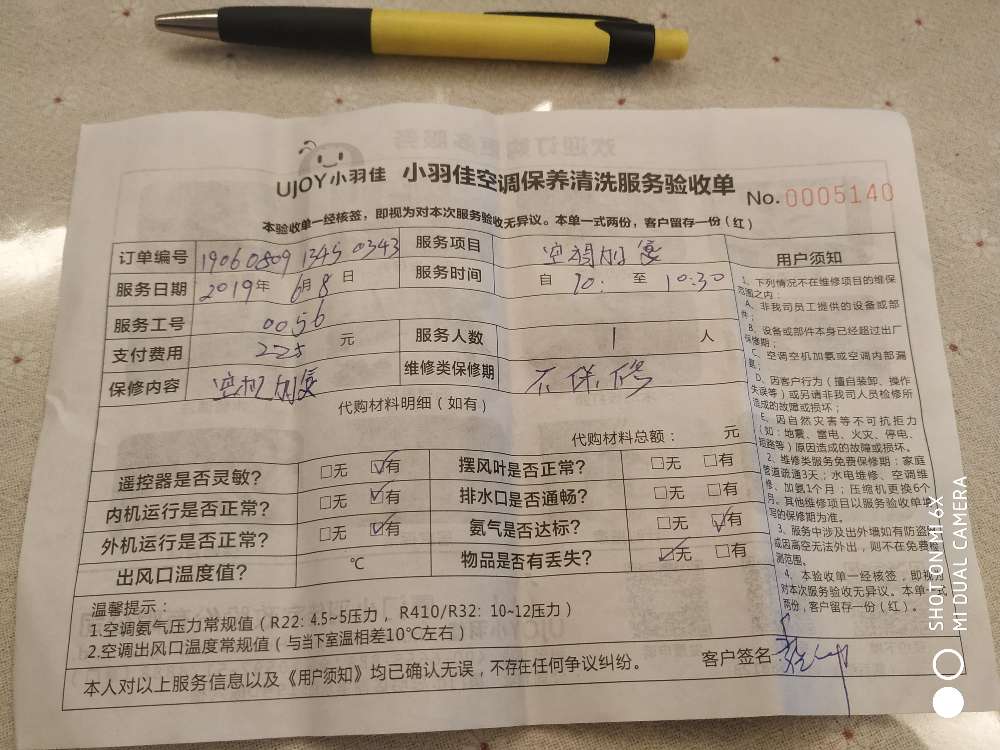 UJOY小羽佳 小羽佳空调保养清洗服务验收单 No.0005140
本验收单一经核签，即视为对本次服务验收无异议。本单一式两份，客户留存一份（红）
订单编号 19060809 1345 0343 服务项目
服务日期 2019年 6月 8日 服务时间 自 10: 至 10:30
服务工号 0056
支付费用 225 元 服务人数 1 人
保修内容 维修类保修期 不保修
代购材料明细（如有）
代购材料总额： 元
遥控器是否灵敏？ □无 ☑有 摆风叶是否正常？ □无 □有
内机运行是否正常？ □无 ☑有 排水口是否通畅？ □无 □有
外机运行是否正常？ □无 ☑有 氨气是否达标？ □无 ☑有
出风口温度值？ ℃ 物品是否有丢失？ ☑无 □有
温馨提示：
1.空调氨气压力常规值（R22: 4.5~5压力， R410/R32: 10~12压力）
2.空调出风口温度常规值（与当下室温相差10℃左右）
本人对以上服务信息以及《用户须知》均已确认无误，不存在任何争议纠纷。 客户签名
用户须知
1、下列情况不在维修项目的维保
范围之内：
A、非我司员工提供的设备或部
件；
B、设备或部件本身已经超过出厂
保修期；
C、空调空机加氨或空调内部漏
氨；
D、因客户行为（擅自装卸、操作
失误等）或另请非我司人员检修所
造成的故障或损坏；
E、因自然灾害等不可抗拒力
（如：地震、雷电、火灾、停电、
短路等）原因造成的故障或损坏。
2、维修类服务免费保修期：家庭
管道疏通3天；水电维修、空调维
修、加氨1个月；压缩机更换6个
月。其他维修项目以服务验收单填
写的保修期为准。
3、服务中涉及出外墙如有防盗网
或因高空无法外出，则不在免费检
测范围。
4、本验收单一经核签，即视为
对本次服务验收无异议。本单一式
两份，客户留存一份（红）。
SHOT ON MI 6X
MI DUAL CAMERA